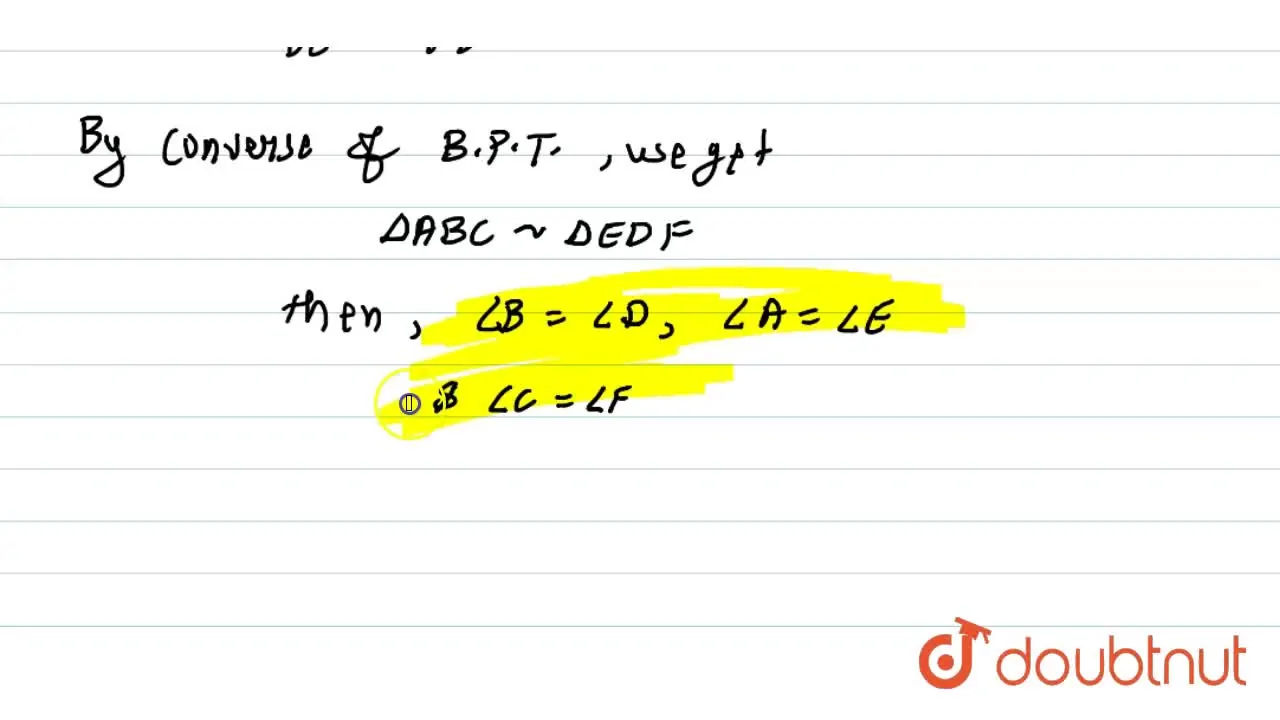 By Converse of B.P.T. , we get
ΔABC ~ ΔEDF
then, ∠B = ∠D, ∠A = ∠E
& ∠C = ∠F
doubtnut